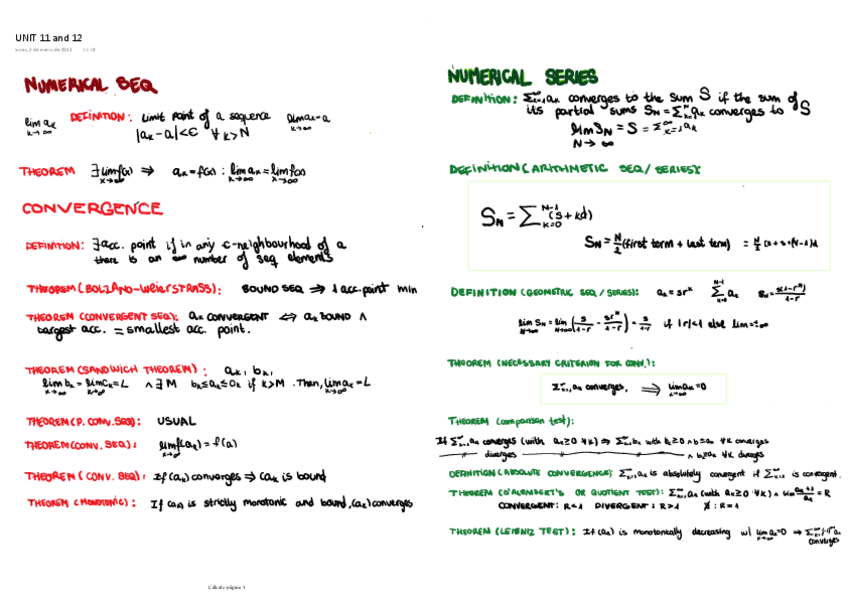 UNIT 11 and 12
lunes, 3 de enero de
NUMERICAL SEQ
lim aₖ
k→∞
DEFINITION: Limit point of a sequence lim aₖ=a
|aₖ-a|<ϵ ∀k>N
THEOREM ∃ lim f(x) ⇒ aₖ=f(k) : lim aₖ=lim f(x)
x→∞ k→∞ x→∞
CONVERGENCE
DEFINITION: ∃acc. point if in any ϵ-neighbourhood of a
there is an ∞ number of seq elements
THEOREM (BOLZANO-Weierstrass): BOUND SEQ ⇒ 1 acc.point min
THEOREM (CONVERGENT SEQ): aₖ CONVERGENT ⇔ aₖ BOUND ∧
Largest acc. = smallest acc. point.
THEOREM (SANDWICH THEOREM): aₖ, bₖ,
lim bₖ = lim cₖ=L ∧ ∃ M bₖ≤aₖ≤cₖ if k>M. Then, lim aₖ=L
k→∞ k→∞ k→∞
THEOREM (P. CONV. SEQ): USUAL
THEOREM (CONV. SEQ): lim f(aₖ) = f(a)
k→∞
THEOREM (CONV. SEQ): If (aₖ) converges ⇒ (aₖ is bound
THEOREM (MONOTONIC): If (aₖ) is strictly monotonic and bound, (aₖ) converges
NUMERICAL SERIES
DEFINITION: Σ∞ₖ₌₁aₖ converges to the sum S if the sum of
its partial sums Sɴ=Σaₖ converges to S
lim Sɴ = S = Σ∞ₖ₌₁aₖ
N→∞
DEFINITION (ARITHMETIC SEQ/SERIES):
Sɴ = Σ (s+kd)
N-1
k=0
Sɴ = N/2 (first term + last term) = N/2 (s+s+(N-1)d
DEFINITION (GEOMETRIC SEQ/SERIES): aₖ = srᵏ Σ aₖ Sɴ = s(1-rᴺ)/1-r
lim Sɴ = lim (s/1-r - srᴺ/1-r) = s/1-r if |r|<1 else lim=±∞
N→∞ N→∞
THEOREM (NECESSARY CRITERION FOR CONV.):
Σ∞ₖ₌₁aₖ converges, ⟹ lim aₖ=0
k→∞
THEOREM (comparison test):
If Σ aₖ converges (with aₖ≥0 ∀k) ⇒ Σ bₖ with bₖ≥0 ∧ bₖ≤aₖ ∀k converges
diverges ∧ bₖ≥aₖ ∀k diverges
DEFINITION (ABSOLUTE CONVERGENCE): Σ aₖ is absolutely convergent if Σ is convergent.
THEOREM (D'ALEMBERT'S OR QUOTIENT TEST): Σ aₖ (with aₖ≥0 ∀k) ∧ lim aₖ₊₁/aₖ = R
CONVERGENT: R<1 DIVERGENT: R>1 ∄: R=1
THEOREM (LEIBNIZ TEST): If (aₖ) is monotonically decreasing w/ lim aₖ=0 ⇒ Σ(-1)ᵏ aₖ
k→∞ converges
Cálculo página 1